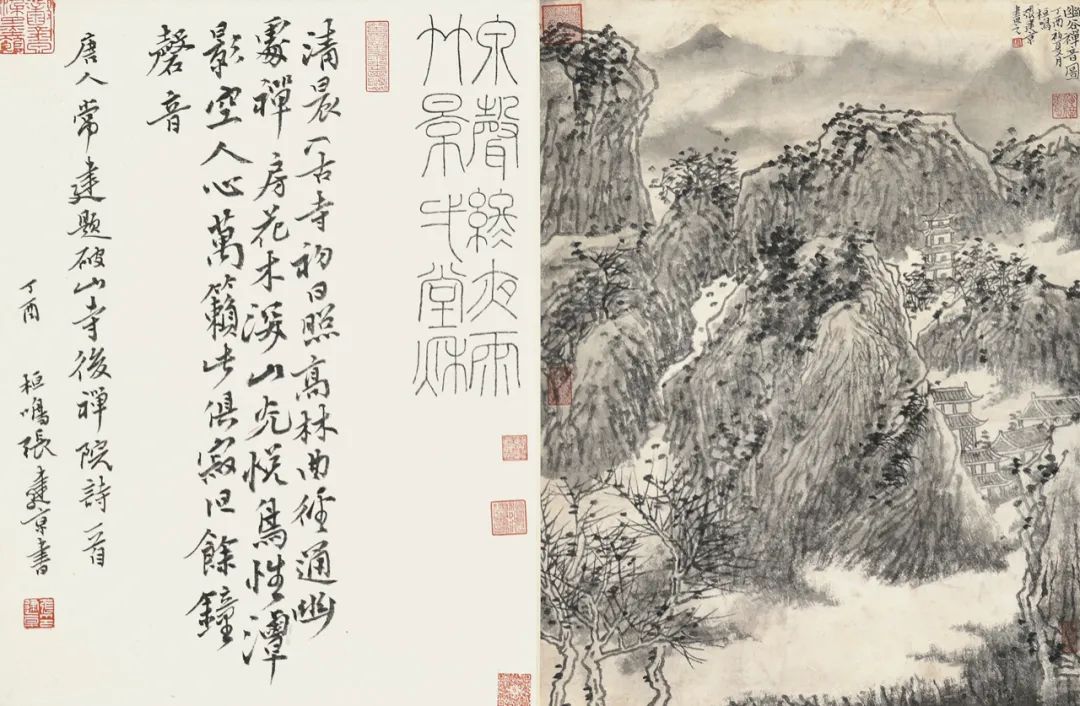 幽谷禪音圖
丁酉夏月
桓鳴
張建京
泉聲夜雨
竹景堂秌
清晨入古寺初日照高林曲徑通幽
處禪房花木深山光悅鳥性潭
影空人心萬籟此俱寂但餘鐘
磬音
唐人常建題破山寺後禪院詩一首
丁酉 桓鳴張建京書